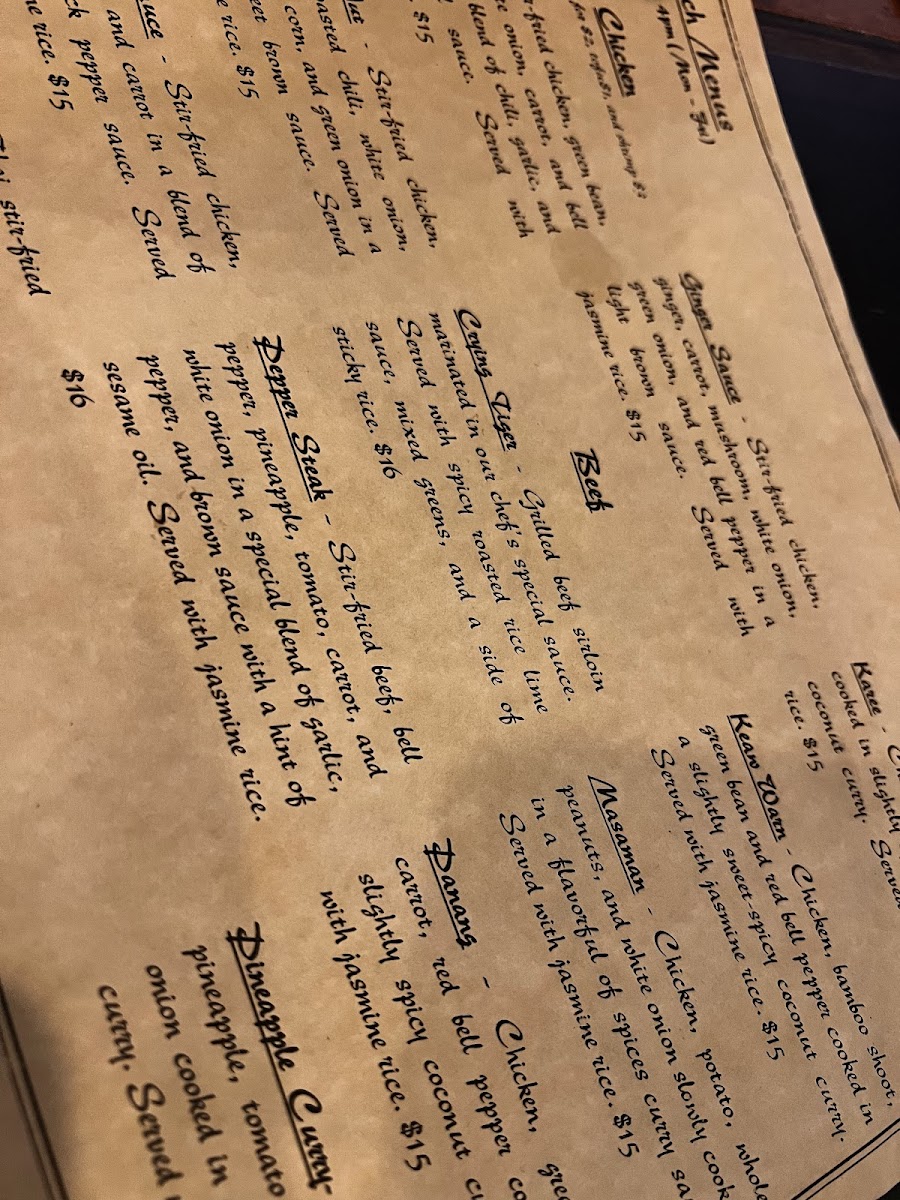 ch Menus
4pm (Mon - Fri)
Chicken
for $2, and shrimp $3
r-fried chicken, green bean,
e onion, carrot, and bell
blend of chili, garlic, and
sauce. Served with
$15
ut - Stir-fried chicken,
asted chili, white onion,
corn, and green onion in a
eet brown sauce. Served
e rice. $15
uce - Stir-fried chicken,
and carrot in a blend of
ck pepper sauce. Served
ne rice. $15
stir-fried
Ginger Sauce - Stir-fried chicken,
ginger, carrot, mushroom, white onion,
green onion, and red bell pepper in a
light brown sauce. Served with
jasmine rice. $15
Beef
Crying Tiger - Grilled beef sirloin
marinated in our chef's special sauce.
Served with spicy roasted rice lime
sauce, mixed greens, and a side of
sticky rice. $16
Pepper Steak - Stir-fried beef, bell
pepper, pineapple, tomato, carrot, and
white onion in a special blend of garlic,
pepper, and brown sauce with a hint of
sesame oil. Served with jasmine rice.
$16
Karee - Ch
cooked in slightly
coconut curry. Served
rice. $15
Keaw Warn - Chicken, bamboo shoot,
green bean and red bell pepper cooked in
a slightly sweet-spicy coconut curry.
Served with jasmine rice. $15
Masaman - Chicken, potato, whole
peanuts, and white onion slowly cook
in a flavorful of spices curry sa
Served with jasmine rice. $15
Panang - Chicken, gree
carrot, red bell pepper co
slightly spicy coconut cu
with jasmine rice. $15
Pineapple Curry-
pineapple, tomato
onion cooked in
curry. Served